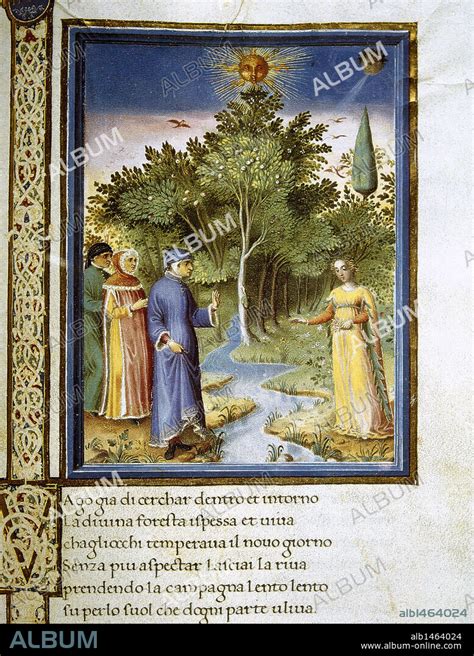 VAgo gia di cerchar dentro et intorno
La diuina foresta ispessa et uiua
chagliocchi temperaua il nouo giorno
Senza piu aspectar lasciai la riua
prendendo la campagna lento lento
su perlo suol che dogni parte uliua
alb1464024
ALBUM
alb1464024
www.album-online.com